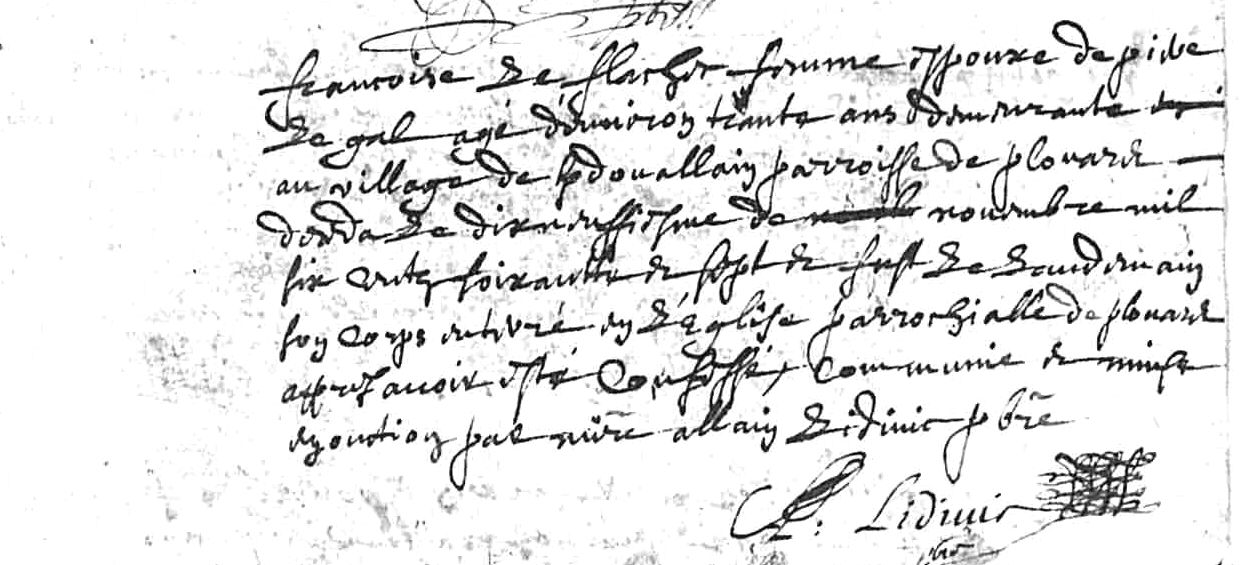 francoise Le flachec femme espouxe de pibe
Le gal agé d'environ trante ans demeurante
au village de kdouallain parroisse de plouaret
deceda Le dixneuffiesme de novembre mil
six centz soixantte et sept et fust Le Lendemain
son corps enterré en L'Eglise parrochialle de plouaret
apprez avoir esté Confessé, Communie et mise
en onction par mire allain Lidivic pbre
A: Lidivic
pbre